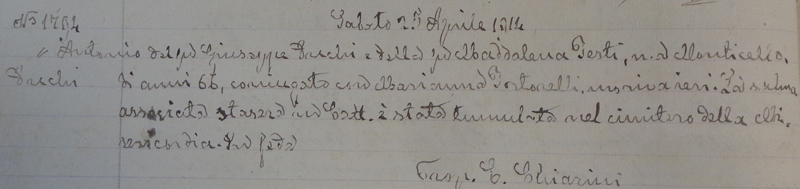 No 1764 Sabato 25 Aprile 1914
"Antonio del fu Giuseppe Duschi e della fu Maddalena Testi, n. a Monticello,
Duschi di anni 66, coniugato con Marianna Tortorelli, moriva ieri. La salma
associata stasera in Catt. è stata tumulata nel cimitero della Mi-
sericordia. In fede
Casp. C. Chiarini